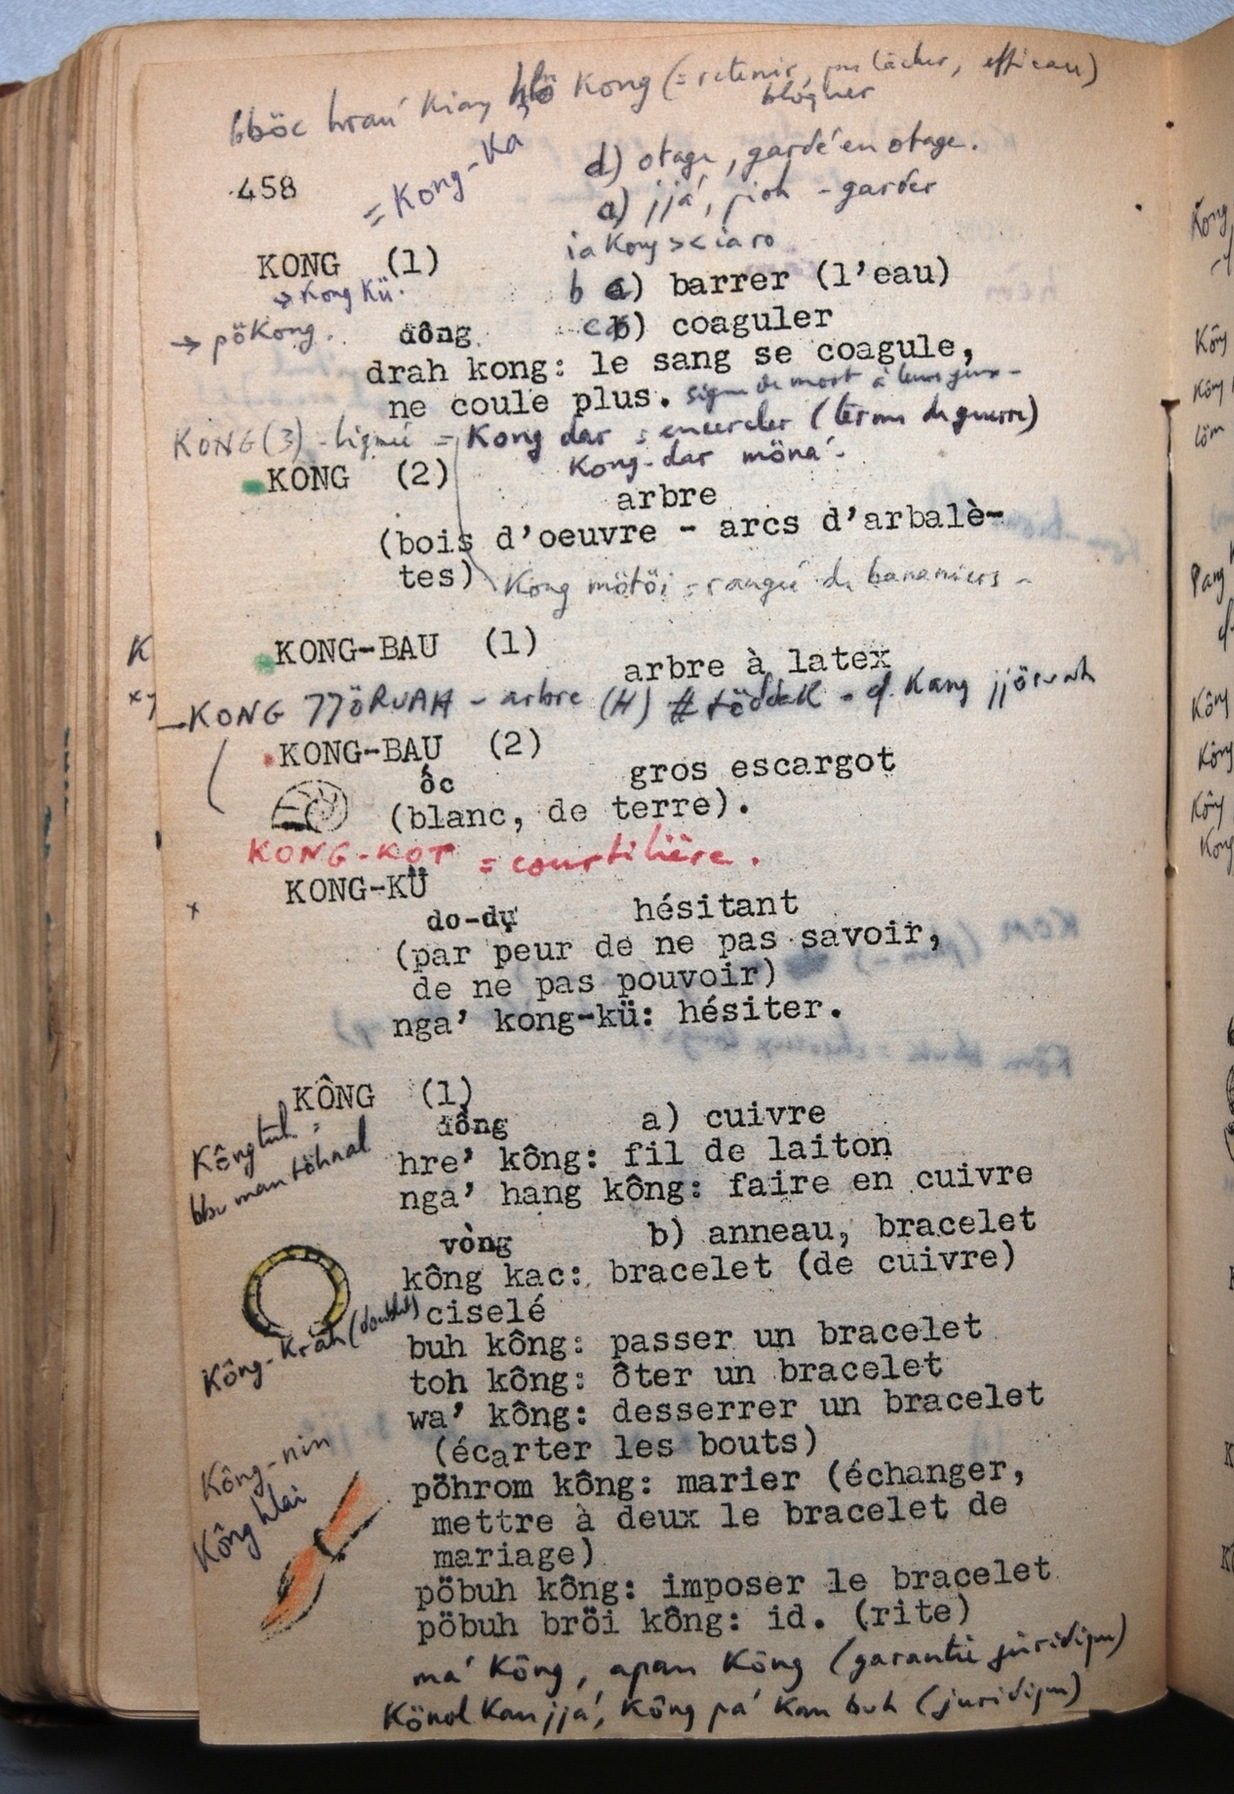 bböc hraú Kiang hlö Kong (= retenir, pas lâcher, efficace)
bloquer
= Kong-Ka
d) otage, gardé en otage.
458
a) jjá, pioh - garder
ia Kong >< ia ro
KONG (1)
→ Kong Kü.
b a) barrer (l'eau)
→ pöKong.
đông
c b) coaguler
drah kong: le sang se coagule,
ne coule plus. signe de mort à leurs yeux -
KONG (3) - lignée = Kong dar : encercler (terme de guerre)
Kong-dar möná -
KONG (2)
arbre
(bois d'oeuvre - arcs d'arbalè-
tes)
Kong mötöi = rangée de bananiers -
K
KONG-BAU (1)
arbre à latex
KONG JJÖRUAH - arbre (H) # töddeK - cf. Kang jjöruah
KONG-BAU (2)
ốc
gros escargot
(blanc, de terre).
KONG-KOT = courtilière.
x
KONG-KÜ
do-dự
hésitant
(par peur de ne pas savoir,
de ne pas pouvoir)
nga' kong-kü: hésiter.
KÔNG (1)
đồng
a) cuivre
Kông tuh =
hre' kông: fil de laiton
nga' hang kông: faire en cuivre
vòng
b) anneau, bracelet
kông kac: bracelet (de cuivre)
ciselé
Kông-Krah (double)
buh kông: passer un bracelet
toh kông: ôter un bracelet
wa' kông: desserrer un bracelet
(écarter les bouts)
Kông-nin
pöhrom kông: marier (échanger,
Kông hlai
mettre à deux le bracelet de
mariage)
pöbuh kông: imposer le bracelet
pöbuh bröi kông: id. (rite)
má Kông, apan Kông (garantie juridique)
Könol Kan jjá, Kông pá Kan buh (juridique)